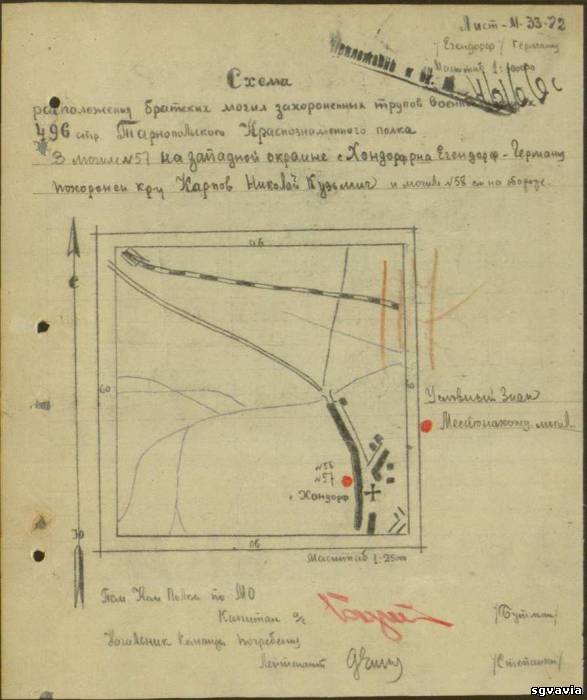 Лист-М-33-72
/Егендорф/ Германия
Масштаб 1:
Приложение к
Схема
расположения братских могил захороненных трупов
496 стр. Тарнопольского Краснознаменного полка
В могиле №57 на западной окраине с. Хондорф Егендорф-Германия
похоронен кр-ц Карпов Николай Кузьмич и могиле №58 см на обороте.
06
С
60
Условный Знак
Местонахожд. могил
№58
№57
с. Хондорф
30
06
Масштаб 1:25000
Пом Ком Полка по МО
Капитан а/с
/Бутман/
Начальник команды погребения
Лейтенант
/Степанкин/
sgvavia